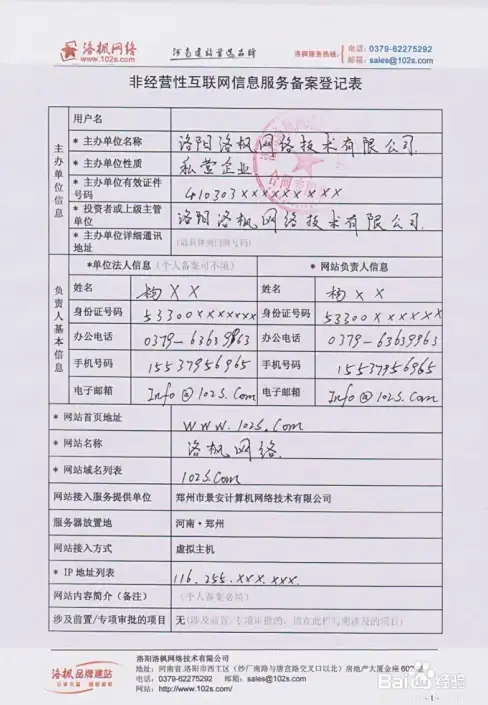 洛枫网络
www.102s.com
河南建站首选品牌
洛枫服务热线:
电话: 0379-62275292
邮箱: sales@102s.com
非经营性互联网信息服务备案登记表
主办单位信息
用户名
* 主办单位名称 洛阳洛枫网络技术有限公司
* 主办单位性质 私营企业
* 主办单位有效证件号码 410303xxxxxxxxx
* 投资者或上级主管单位 洛阳洛枫网络技术有限公司.
* 主办单位详细通讯地址 (请具体到门牌号码)
负责人基本信息
*单位法人信息(个人备案可不填) * 网站负责人信息
姓名 杨XX 姓名 杨XX
身份证号码 53300xxxxxxxx 身份证号码 53300xxxxxxx
办公电话 0379-63639963 办公电话 0379-63639963
手机号码 15537956965 手机号码 15537956965
电子邮箱 Info@102S.Com 电子邮箱 Info@102S.Com
* 网站首页地址 WWW.102S.Com
* 网站名称 洛枫网络.
* 网站域名列表 102S.Com
网站接入服务提供单位 郑州市景安计算机网络技术有限公司
服务器放置地 河南·郑州
网站接入方式 虚拟主机
* IP 地址列表 116.255.xxx.xxx.
网站内容简介(备注) (个人备案必填)
涉及前置/专项审批的项目 无(涉及前置/专项审批的, 请在此栏写明涉及的项目)
洛枫品牌建站
洛阳洛枫网络技术有限公司
地址: 河南省.洛阳市西工区 (纱厂南路与唐宫路交叉口以北) 房地产大厦金座
电话: 0379-62275292 邮箱: sales@102s.com
网站: http://www.102s.com/
Baidu经验